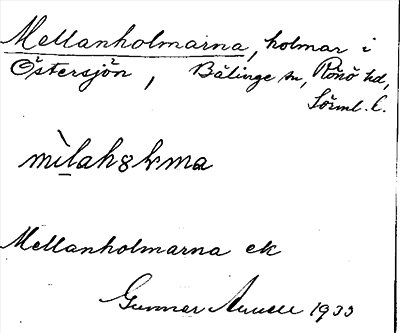 Mellanholmarna, holmar i
Östersjön, Bälinge sn, Rönö hd,
Sörml. l.
Mellanholmarna ek
Gunnar 1933